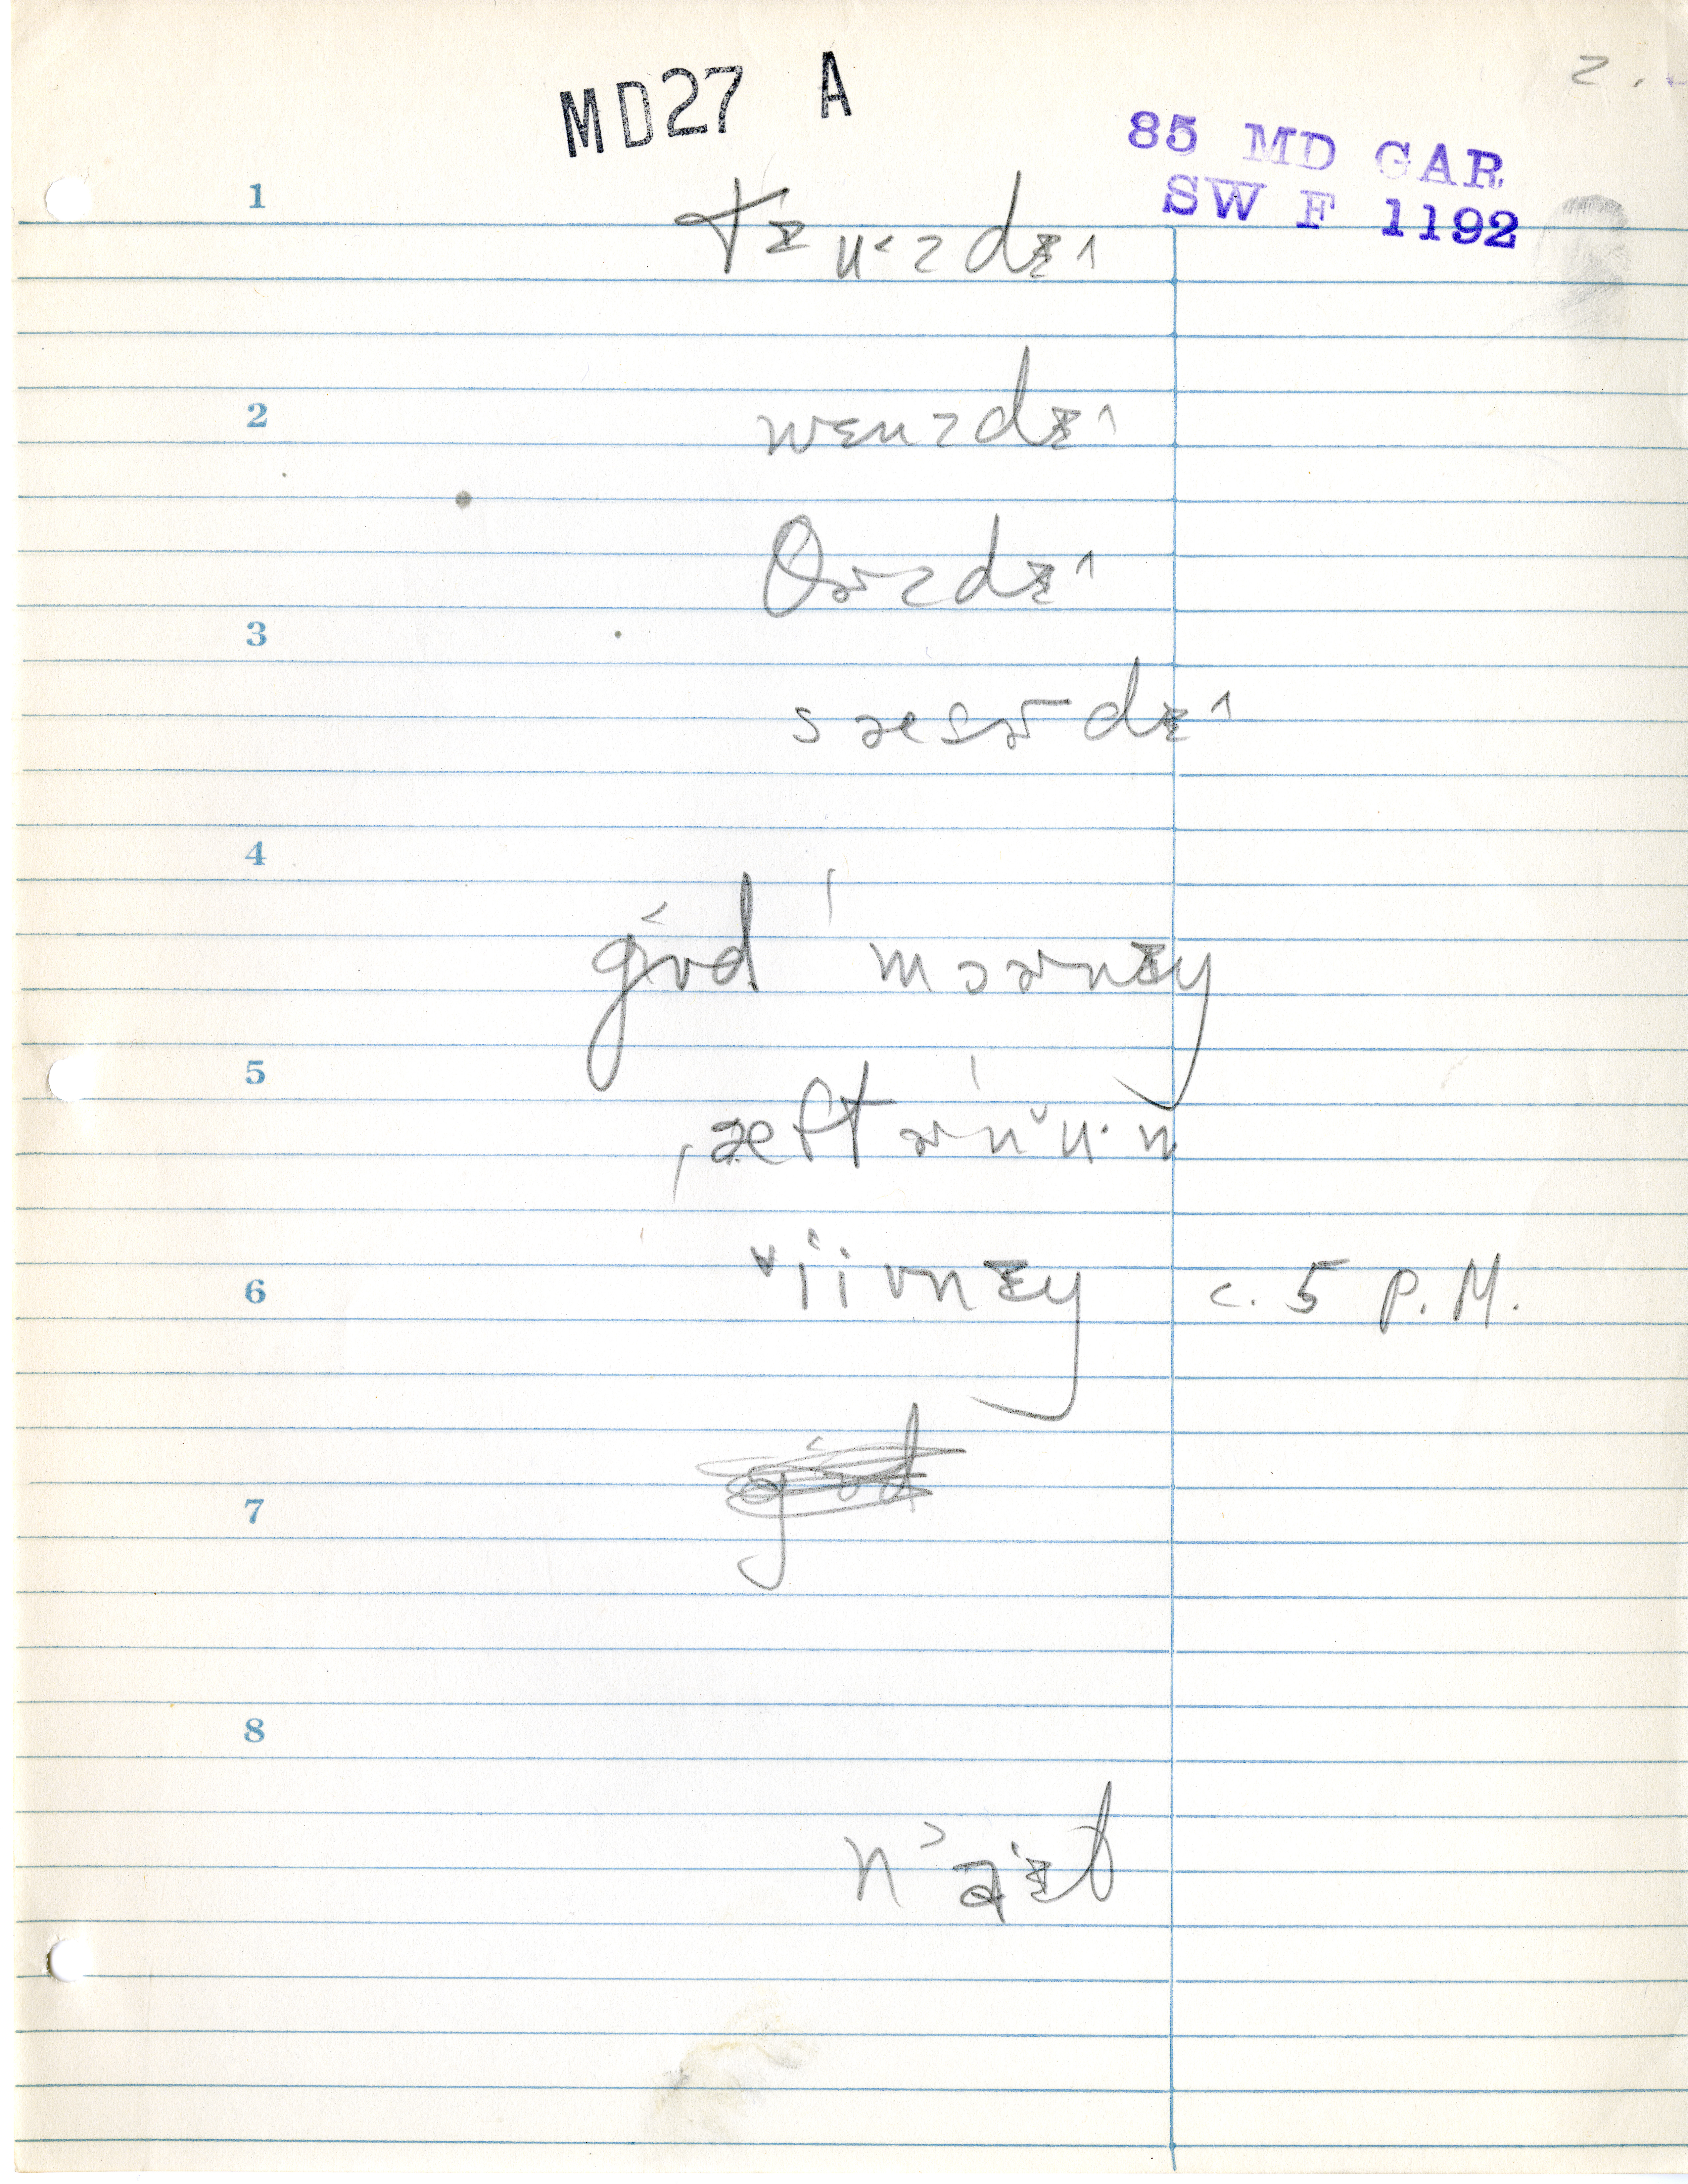 MD27 A
2.
85 MD GAR
SW F 1192
1
tɪʉ˂zdɪ˄
2
wɛnzdɪ˄
θɚzdɪ˄
3
sæɾɚdɪ˄
4
gʊ˂d ˈmɔɚnɪŋ
5
ˌæftɚˈnʉ·n
6
ˈiivnɪŋ c. 5 P.M.
7
8
n˃a·ɪt